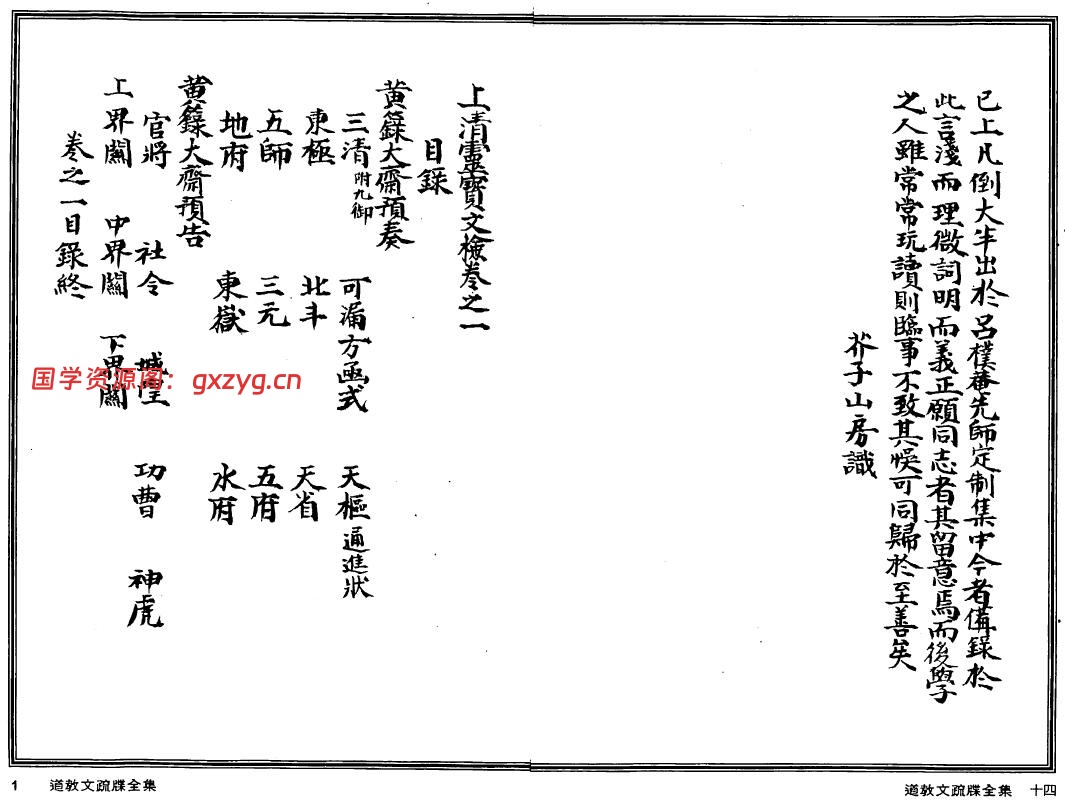 已上凡倒大半出於呂樸菴先師定制集中今者備錄於
此言淺而理微詞明而義正願同志者其留意焉而後學
之人雖常常玩讀則臨事不致其悞可同歸於至善矣
芥子山房識
道教文疏牒全集 十四
上清靈寶文檢卷之一
目錄
黃籙大齋預奏
三清附九御 可漏方函式 天樞通進狀
東極 北斗 天省
五師 三元 五府
地府 東嶽 水府
黃籙大齋預告
官將 社令 城隍 功曹 神虎
上界關 中界關 下界關
卷之一目錄終
国学资源阁：gxzyg.cn
1 道教文疏牒全集